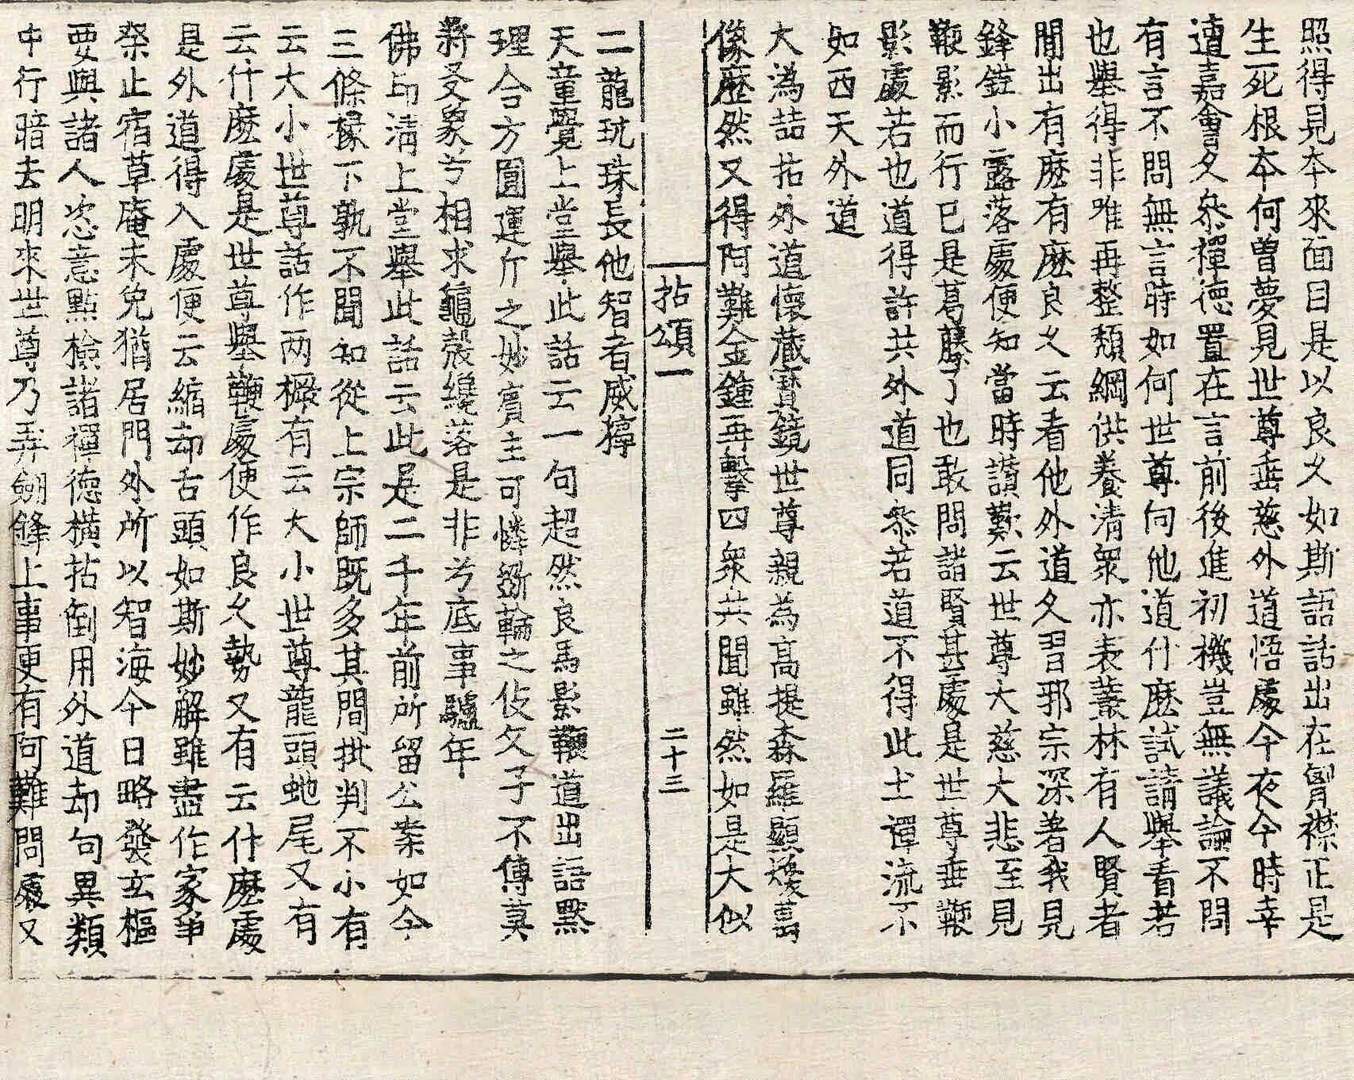 照得見本來面目是以良久如斯語話出在胷襟正是
生死根本何曽夢見世尊垂慈外道悟處今夜今時幸
遭嘉會久叅禪德置在言前後進初機豈無議論不問
有言不問無言時如何世尊向他道什麽試請舉看若
也舉得非唯再整頹綱供養清衆亦表叢林有人賢者
閒出有麽有麽良久云看他外道久習邪宗深著我見
鋒鋩小露落處便知當時讃歎云世尊大慈大悲至見
鞭影而行已是葛藤了也敢問諸賢甚處是世尊垂鞭
影處若也道得許共外道同叅若道不得此土禪流不
如西天外道
大潙喆拈外道懷藏寳鏡世尊親為高提森羅顯煥萬
像歷然又得阿難金鐘再擊四衆共聞雖然如是大似
拈頌一 二十三
二龍玩珠長他智者威獰
天童覺上堂舉此話云一句超然良馬影鞭道出語默
理合方圓運斤之妙賓主可憐斲輪之伎父子不傳莫
將爻象兮相求龜殻纔落是非兮底事驢年
佛印清上堂舉此話云此是二千年前所留公案如今
三條椽下孰不聞知從上宗師既多其間批判不小有
云大小世尊話作两橛有云大小世尊龍頭虵尾又有
云什麽處是世尊舉鞭處便作良久勢又有云什麽處
是外道得入處便云縮却舌頭如斯妙解雖盡作家爭
柰止宿草庵未免猶居門外所以智海今日略發玄樞
要與諸人恣意點撿諸禪德橫拈倒用外道却句異類
中行暗去明來世尊乃弄劒鋒上事更有阿難問處又